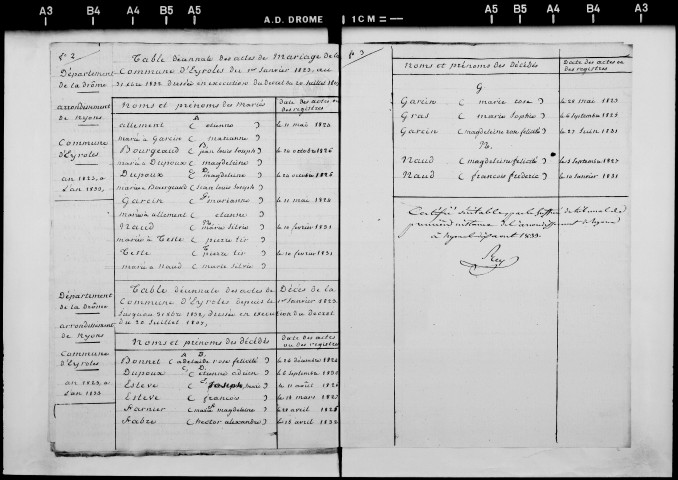 A3 B4 A4 B5 A5 A.D. DROME 1CM= A5 B5 A4 B4 A3
fo 2
Table décennale des actes de Mariage de la
Commune d'Eyroles du 1er janvier 1823, au
31 xbre 1832 dressée en execution du decret du 20 Juillet 1807
Département
de la drôme
arrondissement
de Nyons
Commune
d'Eyroles
an 1823, a
l'an 1833,
Noms et prénoms des Mariés
date des actes ou
des registres
A
allement ( etienne ) le 11 mai 1824
marié a Garcin ( marianne )
B.
Bourgeaud ( jean louis joseph ) le 24 octobre 1826
marié a Dupoux ( magdeleine )
D.
Dupoux ( magdeleine ) le 24 octobre 1826
mariée a Bourgeaud ( jean louis joseph )
G
Garcin ( marianne ) le 11 mai 1824
mariée a allement ( etienne )
N.
Naud ( marie silvie ) le 10 fevrier 1831
mariée à Teste ( pierre tir )
T
Teste ( pierre tir ) le 10 fevrier 1831
marié a Naud ( marie silvie )
Table décennale des actes de Décès de la
Commune d'Eyroles depuis le 1er janvier 1823
jusqu'au 31 xbre 1832, dressée en execution du decret
du 20 Juillet 1807,
Département
de la Drôme
arrondissement
de Nyons
Commune
d'Eyroles.
an 1823, a
l'an 1833
Noms et prénoms des décédés
date des actes
ou des registres
B.
Bonnet ( adelaide rose felicité )
D.
Dupoux ( etienne adrien ) le 6 septembre
Esteve ( joseph ) le 11 août
Esteve ( francois ) le 18 mars 1825
Farnier ( magdeleine ) avril
Fabre ( hector alexandre ) le 18 avril 1832
fo 3
Noms et prénoms des décédés
Date des actes ou
des registres
G
Garcin ( marie rose ) le 28 mai 1823
Gras ( marie sophie ) le 6 septembre 1825
Garcin ( magdeleine rose felicité ) le 27 juin 1831
N.
Naud ( magdeleine felicité ) le 3 septembre 1827
Naud ( francois frederic ) le 10 janvier 1831
Certifié véritable par le greffier du tribunal de
première instance de l'arrondissement de Nyons
à Nyons août 1833.
Rey